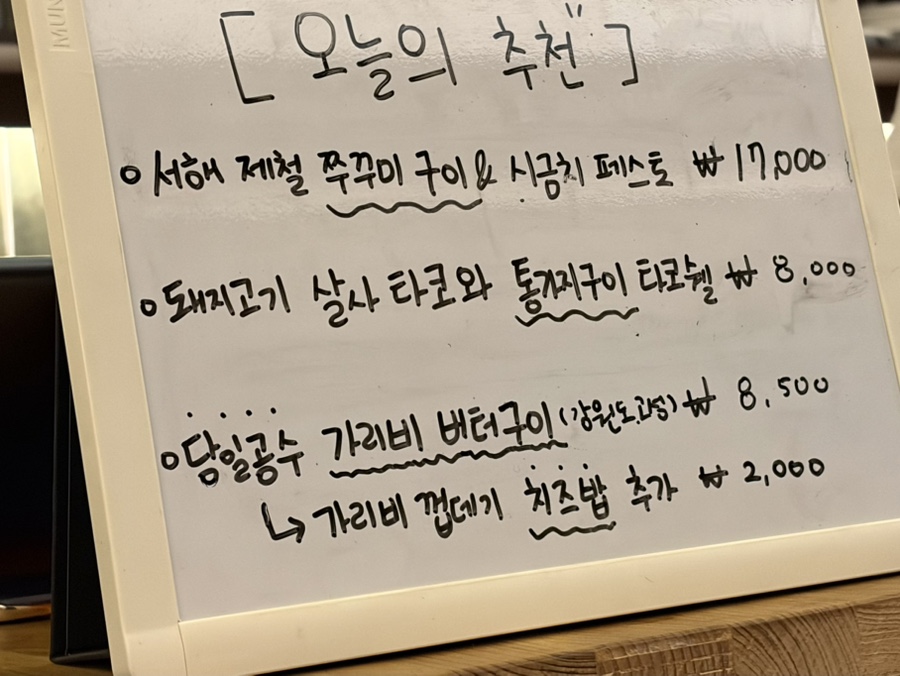 [ 오늘의 추천 ]
○ 서해 제철 쭈꾸미 구이 & 시금치 페스토 ₩ 17,000
○ 돼지고기 살사 타코와 통가지구이 타코쉘 ₩ 8,000
○ 당일공수 가리비 버터구이 (강원도 고성) ₩ 8,500
↳ 가리비 껍데기 치즈밥 추가 ₩ 2,000